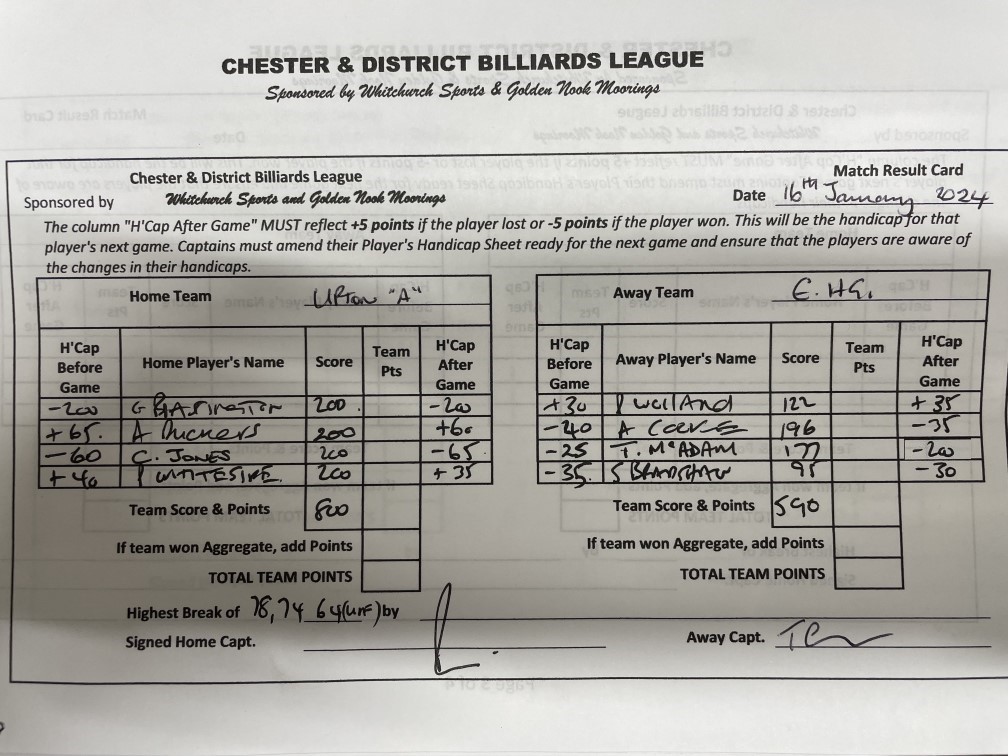 CHESTER & DISTRICT BILLIARDS LEAGUE
Sponsored by Whitchurch Sports & Golden Nook Moorings
Chester & District Billiards League
Match Result Card
Sponsored by Whitchurch Sports and Golden Nook Moorings
Date 16th January 2024
The column "H'Cap After Game" MUST reflect +5 points if the player lost or -5 points if the player won. This will be the handicap for that
player's next game. Captains must amend their Player's Handicap Sheet ready for the next game and ensure that the players are aware of
the changes in their handicaps.
Home Team UPTON "A"
H'Cap Before Game Home Player's Name Score Team Pts H'Cap After Game
-200 G 200 -200
+65. A 200 +60
-60 C. JONES 200 -65
+40 200 +35
Team Score & Points 800
If team won Aggregate, add Points
TOTAL TEAM POINTS
Away Team E.HG.
H'Cap Before Game Away Player's Name Score Team Pts H'Cap After Game
+30 122 +35
-40 A 196 -35
-25 T. McADAM 177 -200
-35. S 95 -30
Team Score & Points 590
If team won Aggregate, add Points
TOTAL TEAM POINTS
Highest Break of 78,74 64(unf) by
Signed Home Capt.
Away Capt.
Page 3 of 4